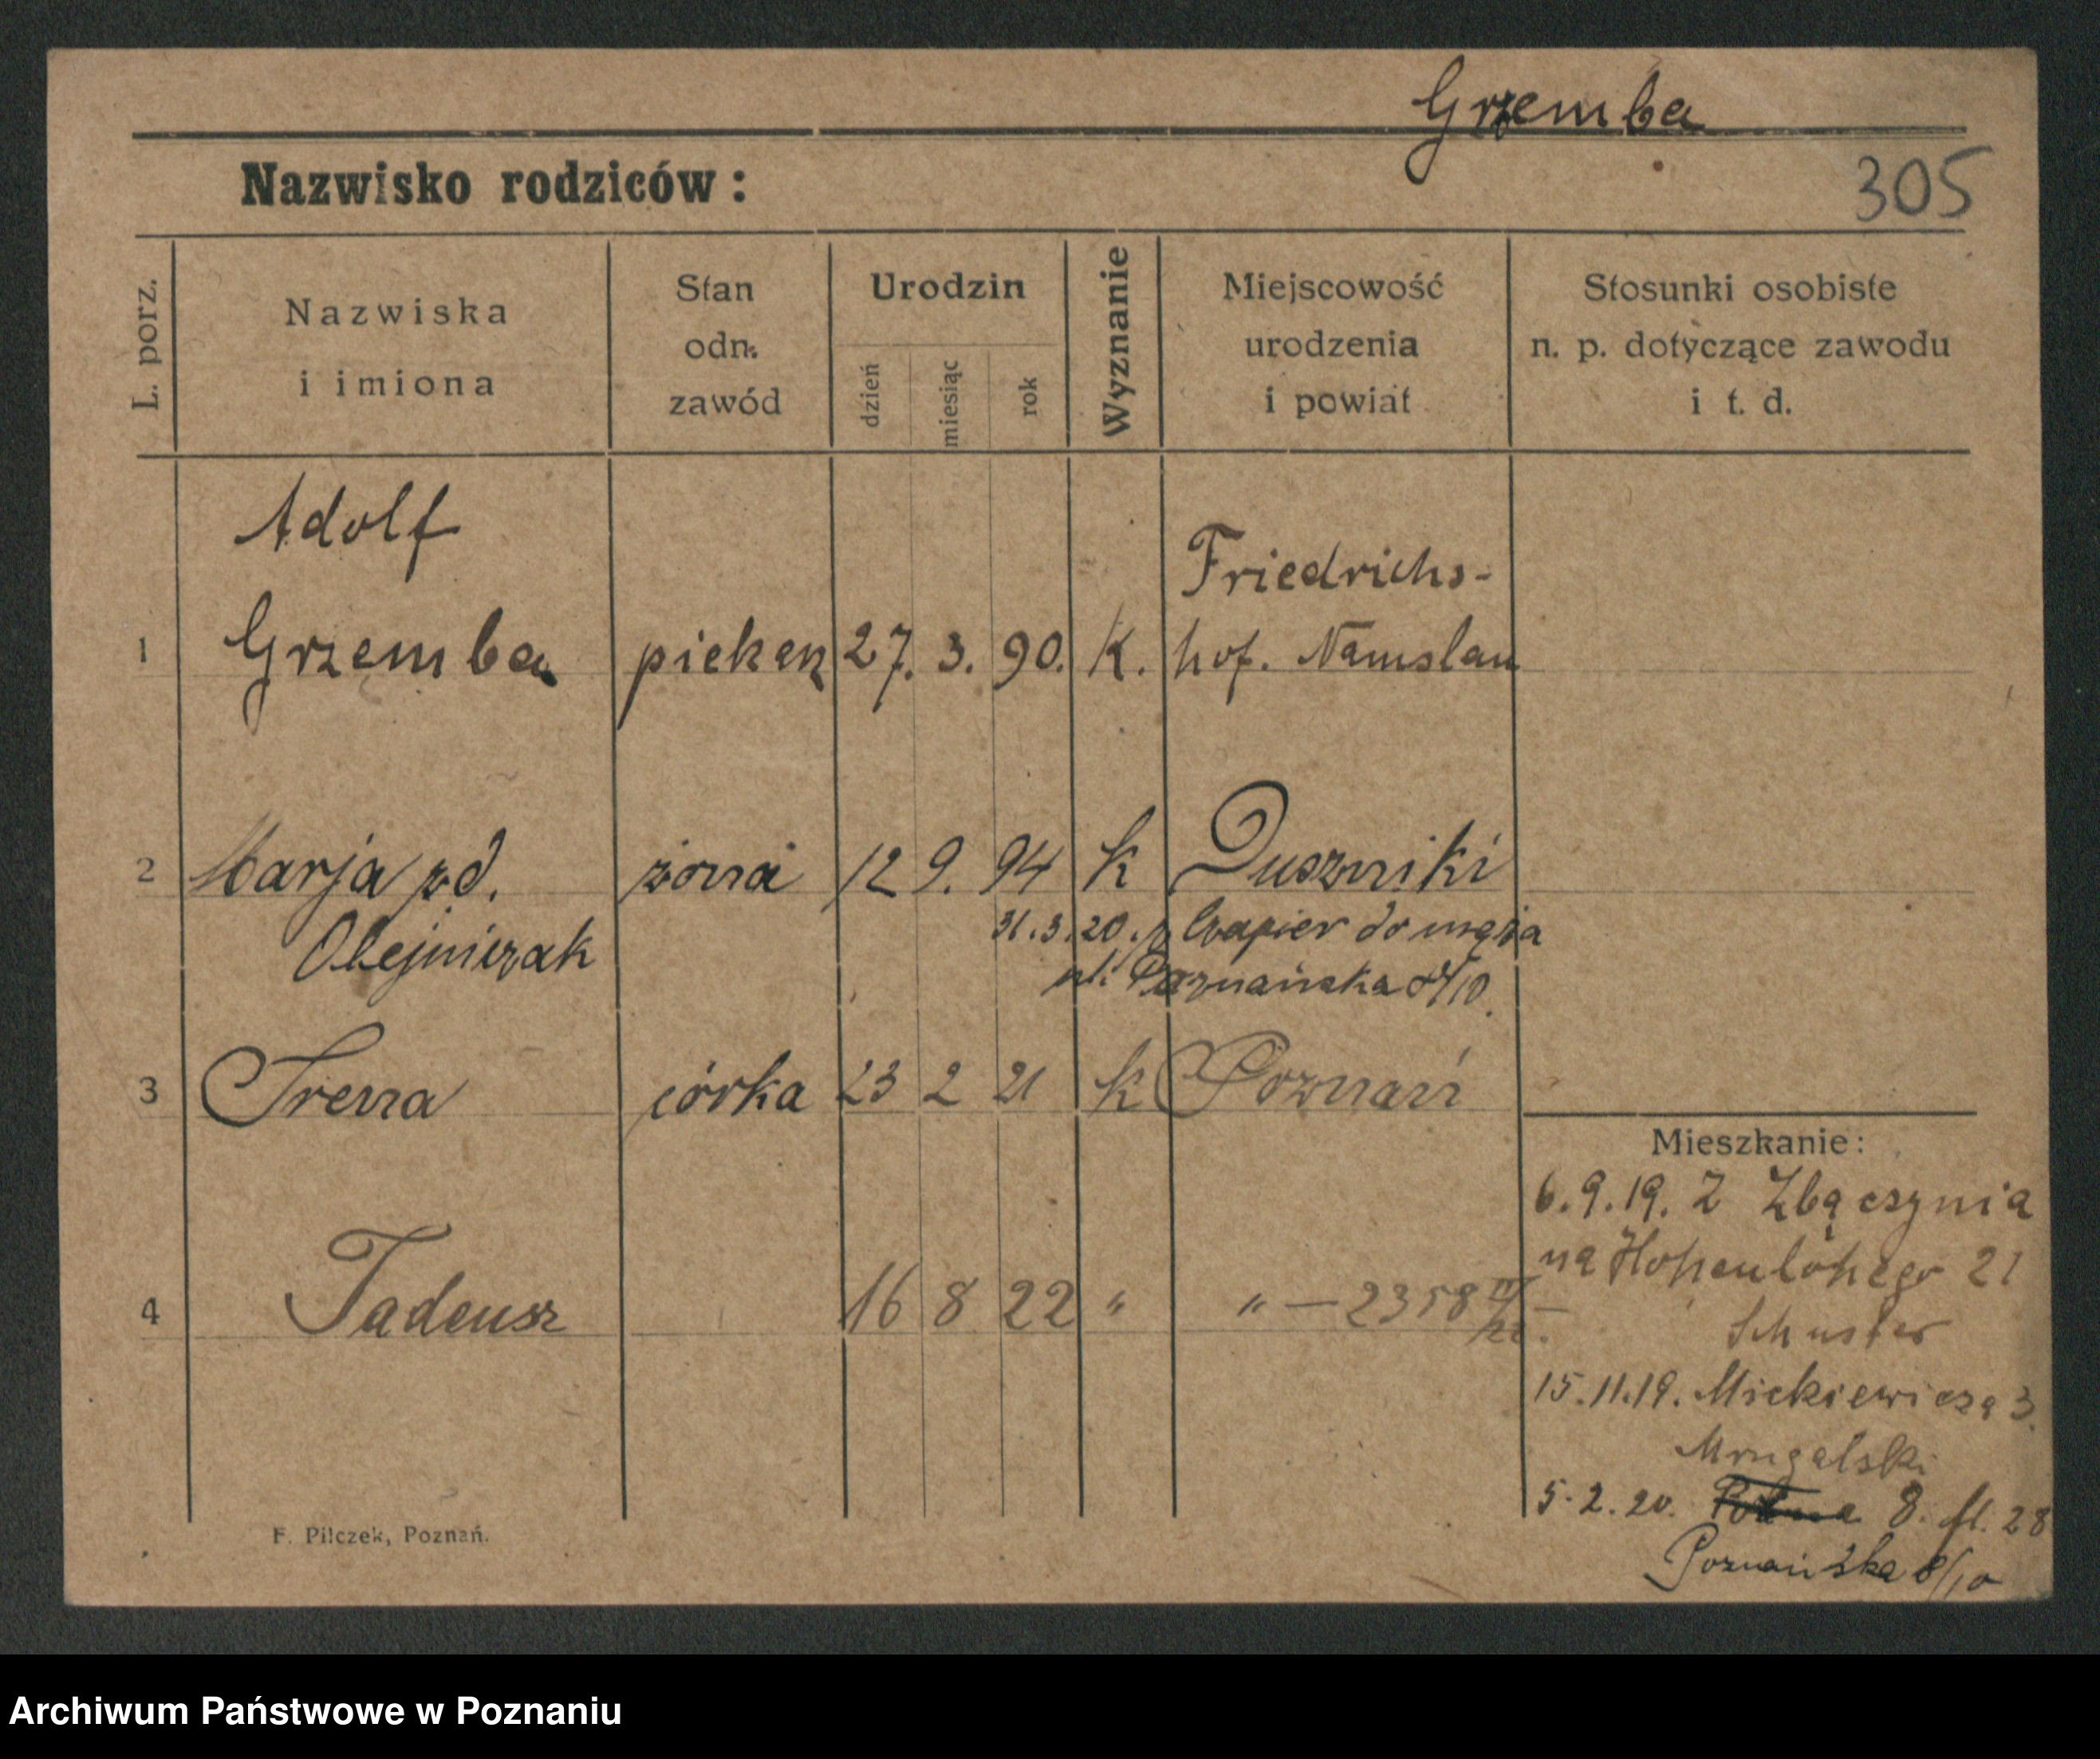 Grzemba
Nazwisko rodziców:
305
L. porz.
Nazwiska
i imiona
Stan
odn.
zawód
Urodzin
dzień
miesiąc
rok
Wyznanie
Miejscowość
urodzenia
i powiat
Stosunki osobiste
n. p. dotyczące zawodu
i t. d.
Adolf
Friedrichs-
1 Grzemba piekarz 27. 3. 90. K. hof. Namslau
2 Marja zd. żona 12 9. 94 K Duszniki
Olejniczak
31.3.20. z do męża
ul. Poznańska 8/10.
3 Irena córka 23 2 21 K Poznań
Mieszkanie:
6.9.19. Z Zbączynia
na Hohenlohego 21
4 Tadeusz 16 8 22 " " — 2358
Schuster
15.11.19. Mickiewicza 3.
Mrugalski
5.2.20. 8. fl. 28
Poznańska 8/10
F. Pilczek, Poznań.
Archiwum Państwowe w Poznaniu